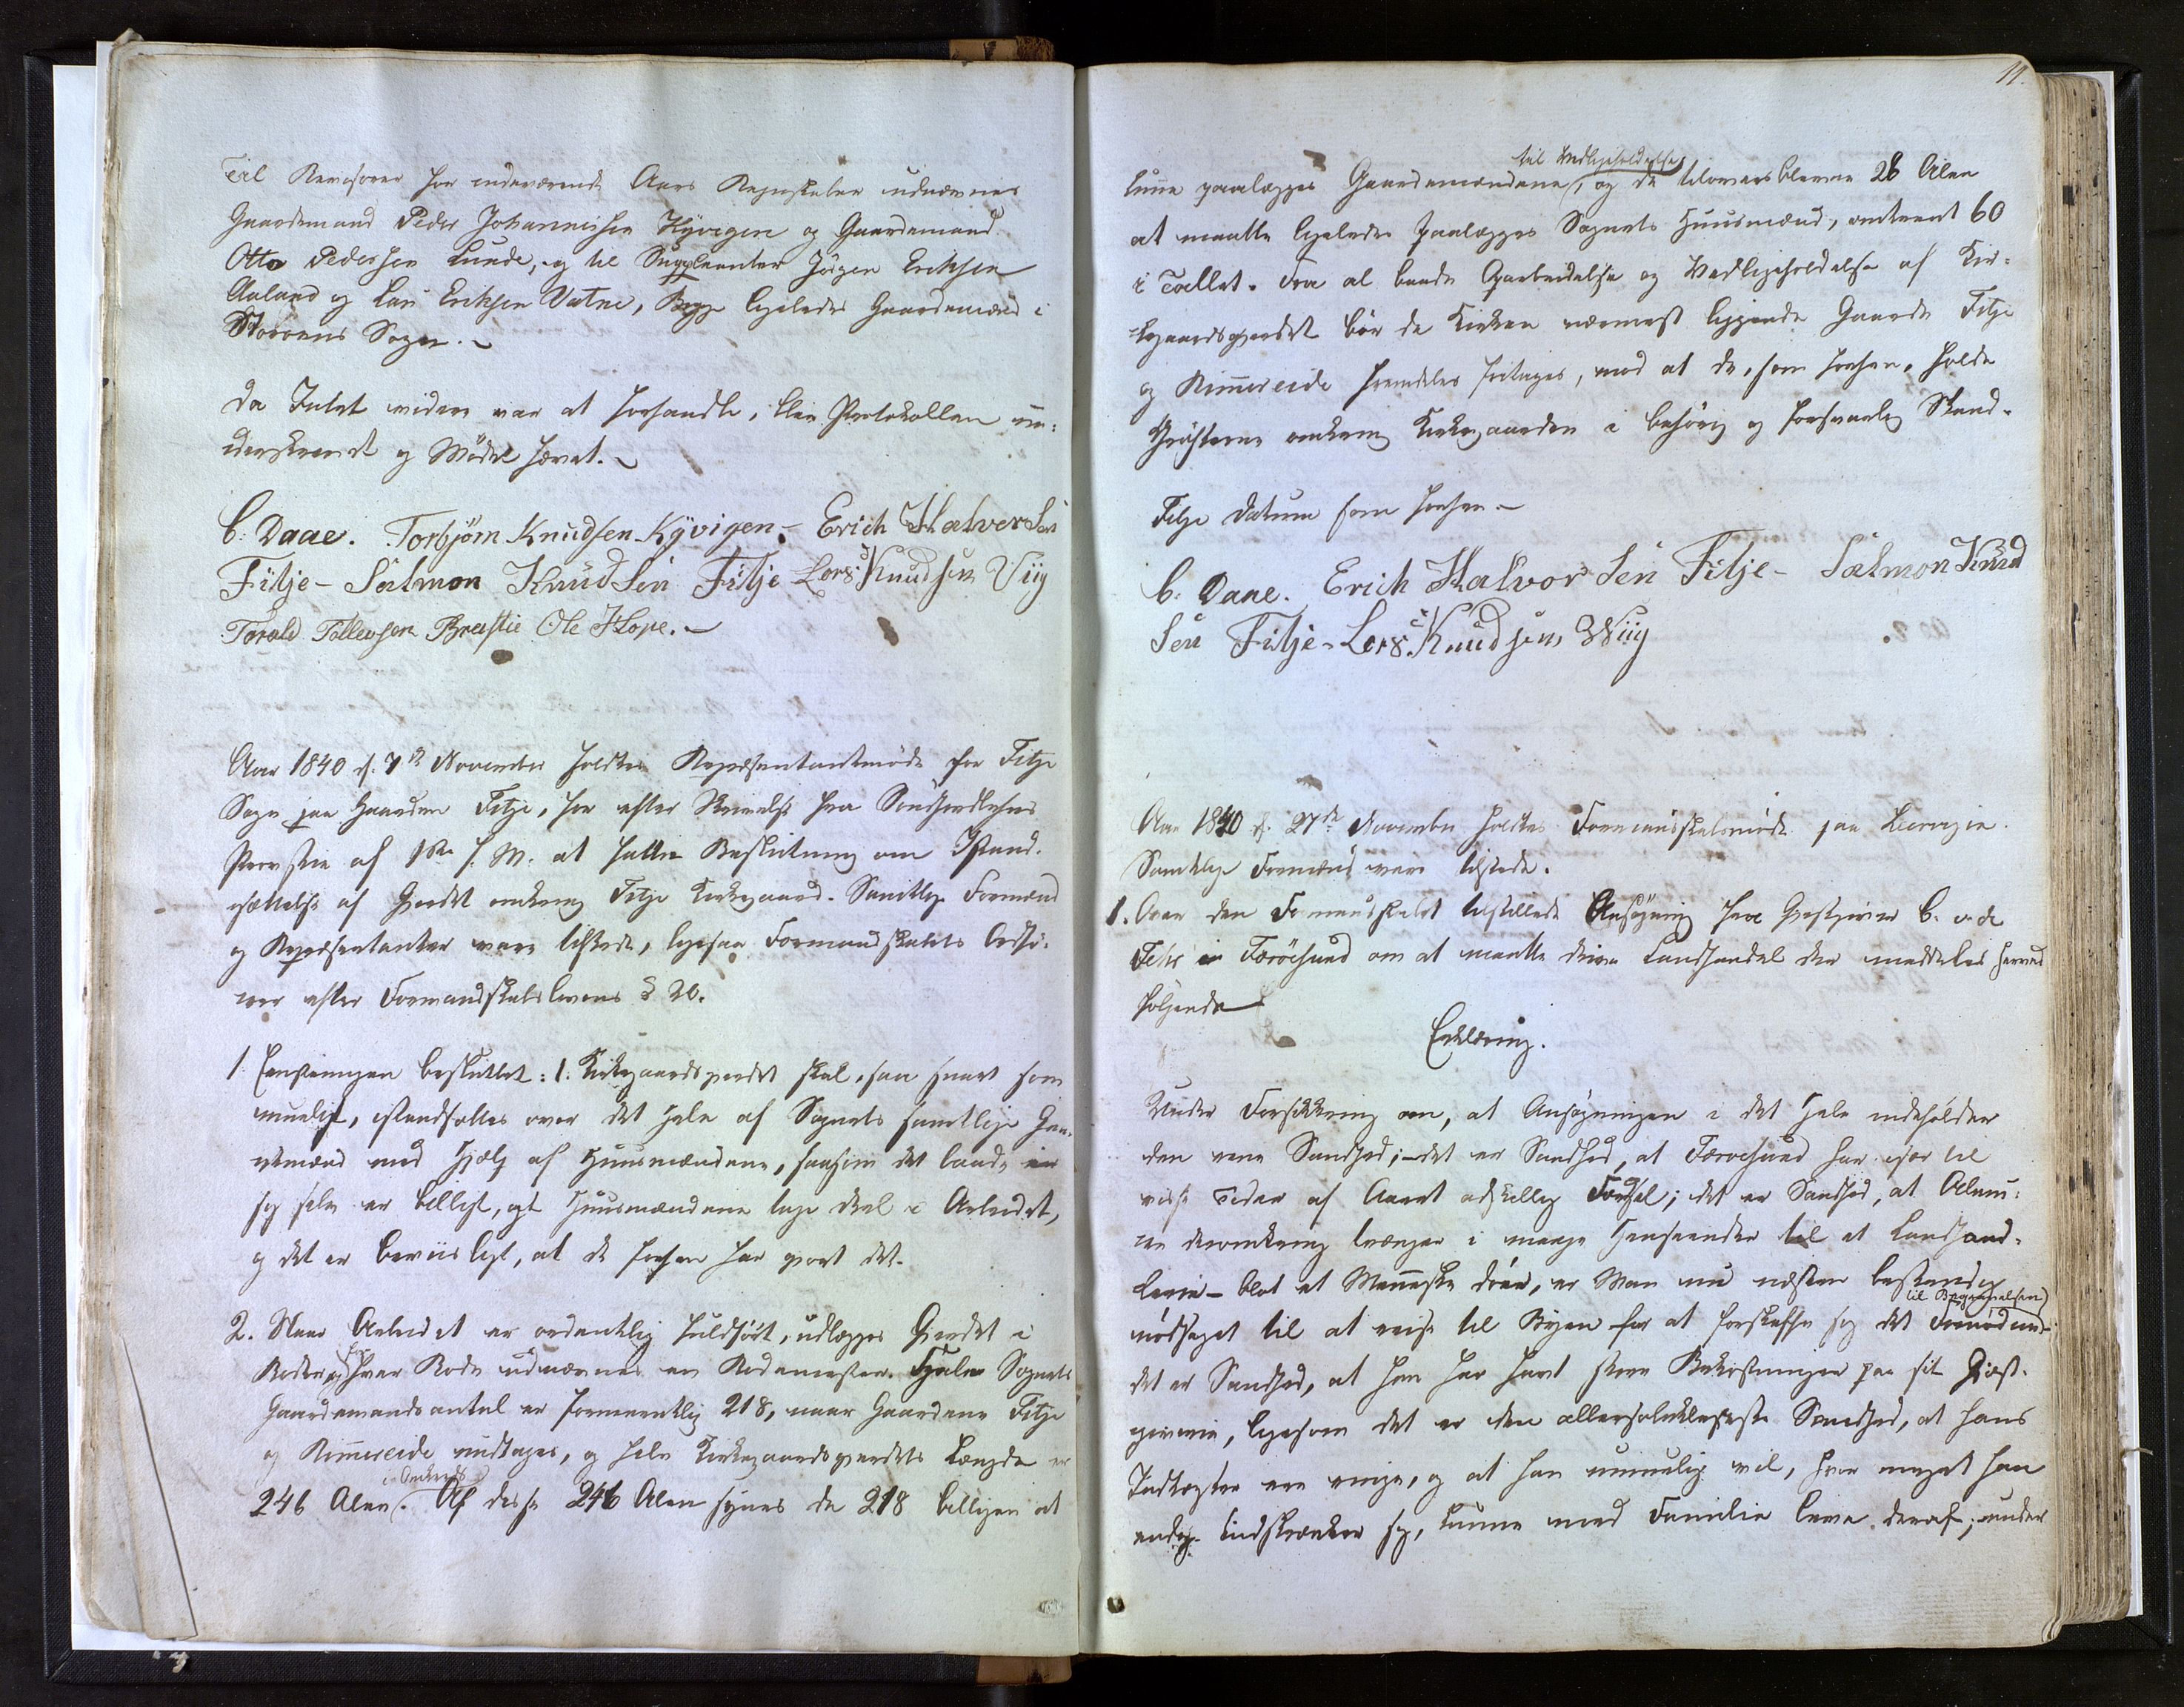 Til Revisorer for indeværende Aars Regnskaber udnævnes
Gaardmand Peder Johannesen Kÿvigen og Gaardemand
Otto Pedersen Lunde, og til Suppleanter Jörgen Eriksen
Aaland og Lars Eriksen Vatne, Begge ligeledes Gaardemænd i
Storoens Sogn.
Da Intet videre var at forhandle, blev Protokollen un-
derskrevet og Mödet hævet.
C. Daae. Torbjörn Knudsen Kÿvigen - Erich Halversen
Fitje - Salmon Knudsen Fitje Lars Knudsen Viig
Torald Tollevsen Ole Hope.
Aar 1840 d. 7de November holdtes Repræsentantmöde for Fitje
Sogn paa Gaarden Fitje, for efter Skrivelse fra Söndhordlehns
Provstie af 1ste f. M. at fatte Beslutning om Istand-
sættelse af Gjerdet omkring Fitje Kirkegaard. Samtlige Formænd
og Repræsentanter vare tilstede, ligesaa Formandskabets Ordfö-
rer efter Formandskabslovens § 20.
1. Eenstemmigen besluttet: 1. Kirkegaardsgjerdet skal, saa snart som
mueligt, istandsættes over det Hele af Sognets samtlige Gaar-
demænd med Hjælp af Huusmændene, saasom det baade i
sig selv er billigt, at Huusmændene tage Deel i Arbeidet,
og det er beviisligt, at de forhen har gjort det.
2. Naar Arbeidet er ordentlig fuldfört, udlægges Gjerdet i
Roder og for hver Rode udnævnes en Rodemester. Hele Sognets
Gaardemandsantal er formeentlig 218, naar Gaardene Fitje
og Rimereide undtages, og hele Kirkegaardsgjerdets Længde er
246 Alen i Omkreds. Af disse 246 Alen synes de 218 billigen at
11.
kunne paalægges Gaardemændene til Vedligeholdelse, og de tiloversblevne 28 Alen
at maatte ligeledes paalægges Sognets Huusmænd, omtrent 60
i Tallet. Fra al baade Oparbeidelse og Vedligeholdelse af Kir-
kegaardsgjerdet bör de Kirken nærmest liggende Gaarde Fitje
og Rimereide fremdeles fritages, mod at de, som forhen, holde
Gröfterne omkring Kirkegaarden i behörig og forsvarlig Stand.
Fitje Datum som forhen.
C. Daae. Erich Halvorsen Fitje - Salmon Knud
sen Fitje - Lars Knudsen Wiig
Aar 1840 d. 27de November holdtes Formandskabsmöde paa Leervigen.
Samtlige Formænd vare tilstede.
1. Over den Formandskabet tilstillede Ansögning fra Gjestgiver C. v. d.
Fehr i Foröesund om at maatte drive Landhandel der meddeltes herved
fölgende
Erklæring.
Under Forsikkring om, at Ansögningen i det Hele indeholder
den rene Sandhed; - det er Sandhed, at Færoesund har især til
visse Tider af Aaret adskillig Færdsel; det er Sandhed, at Almu-
en deromkring trænger i mange Henseender til et Landhand-
lerie - blot et Menneske döer, er Man nu næsten bestandig
nödsaget til at reise til Byen for at forskaffe sig det Fornödne til Begravelsen;
det er Sandhed, at han har havt store Bekostninger paa sit Gjæst-
giverie, ligesom det er den allersoleklareste Sandhed, at hans
Indtægter ere ringe, og at han umuelig vil, hvor meget han
endog indskrænker sig, kunne med Familie leve deraf; under